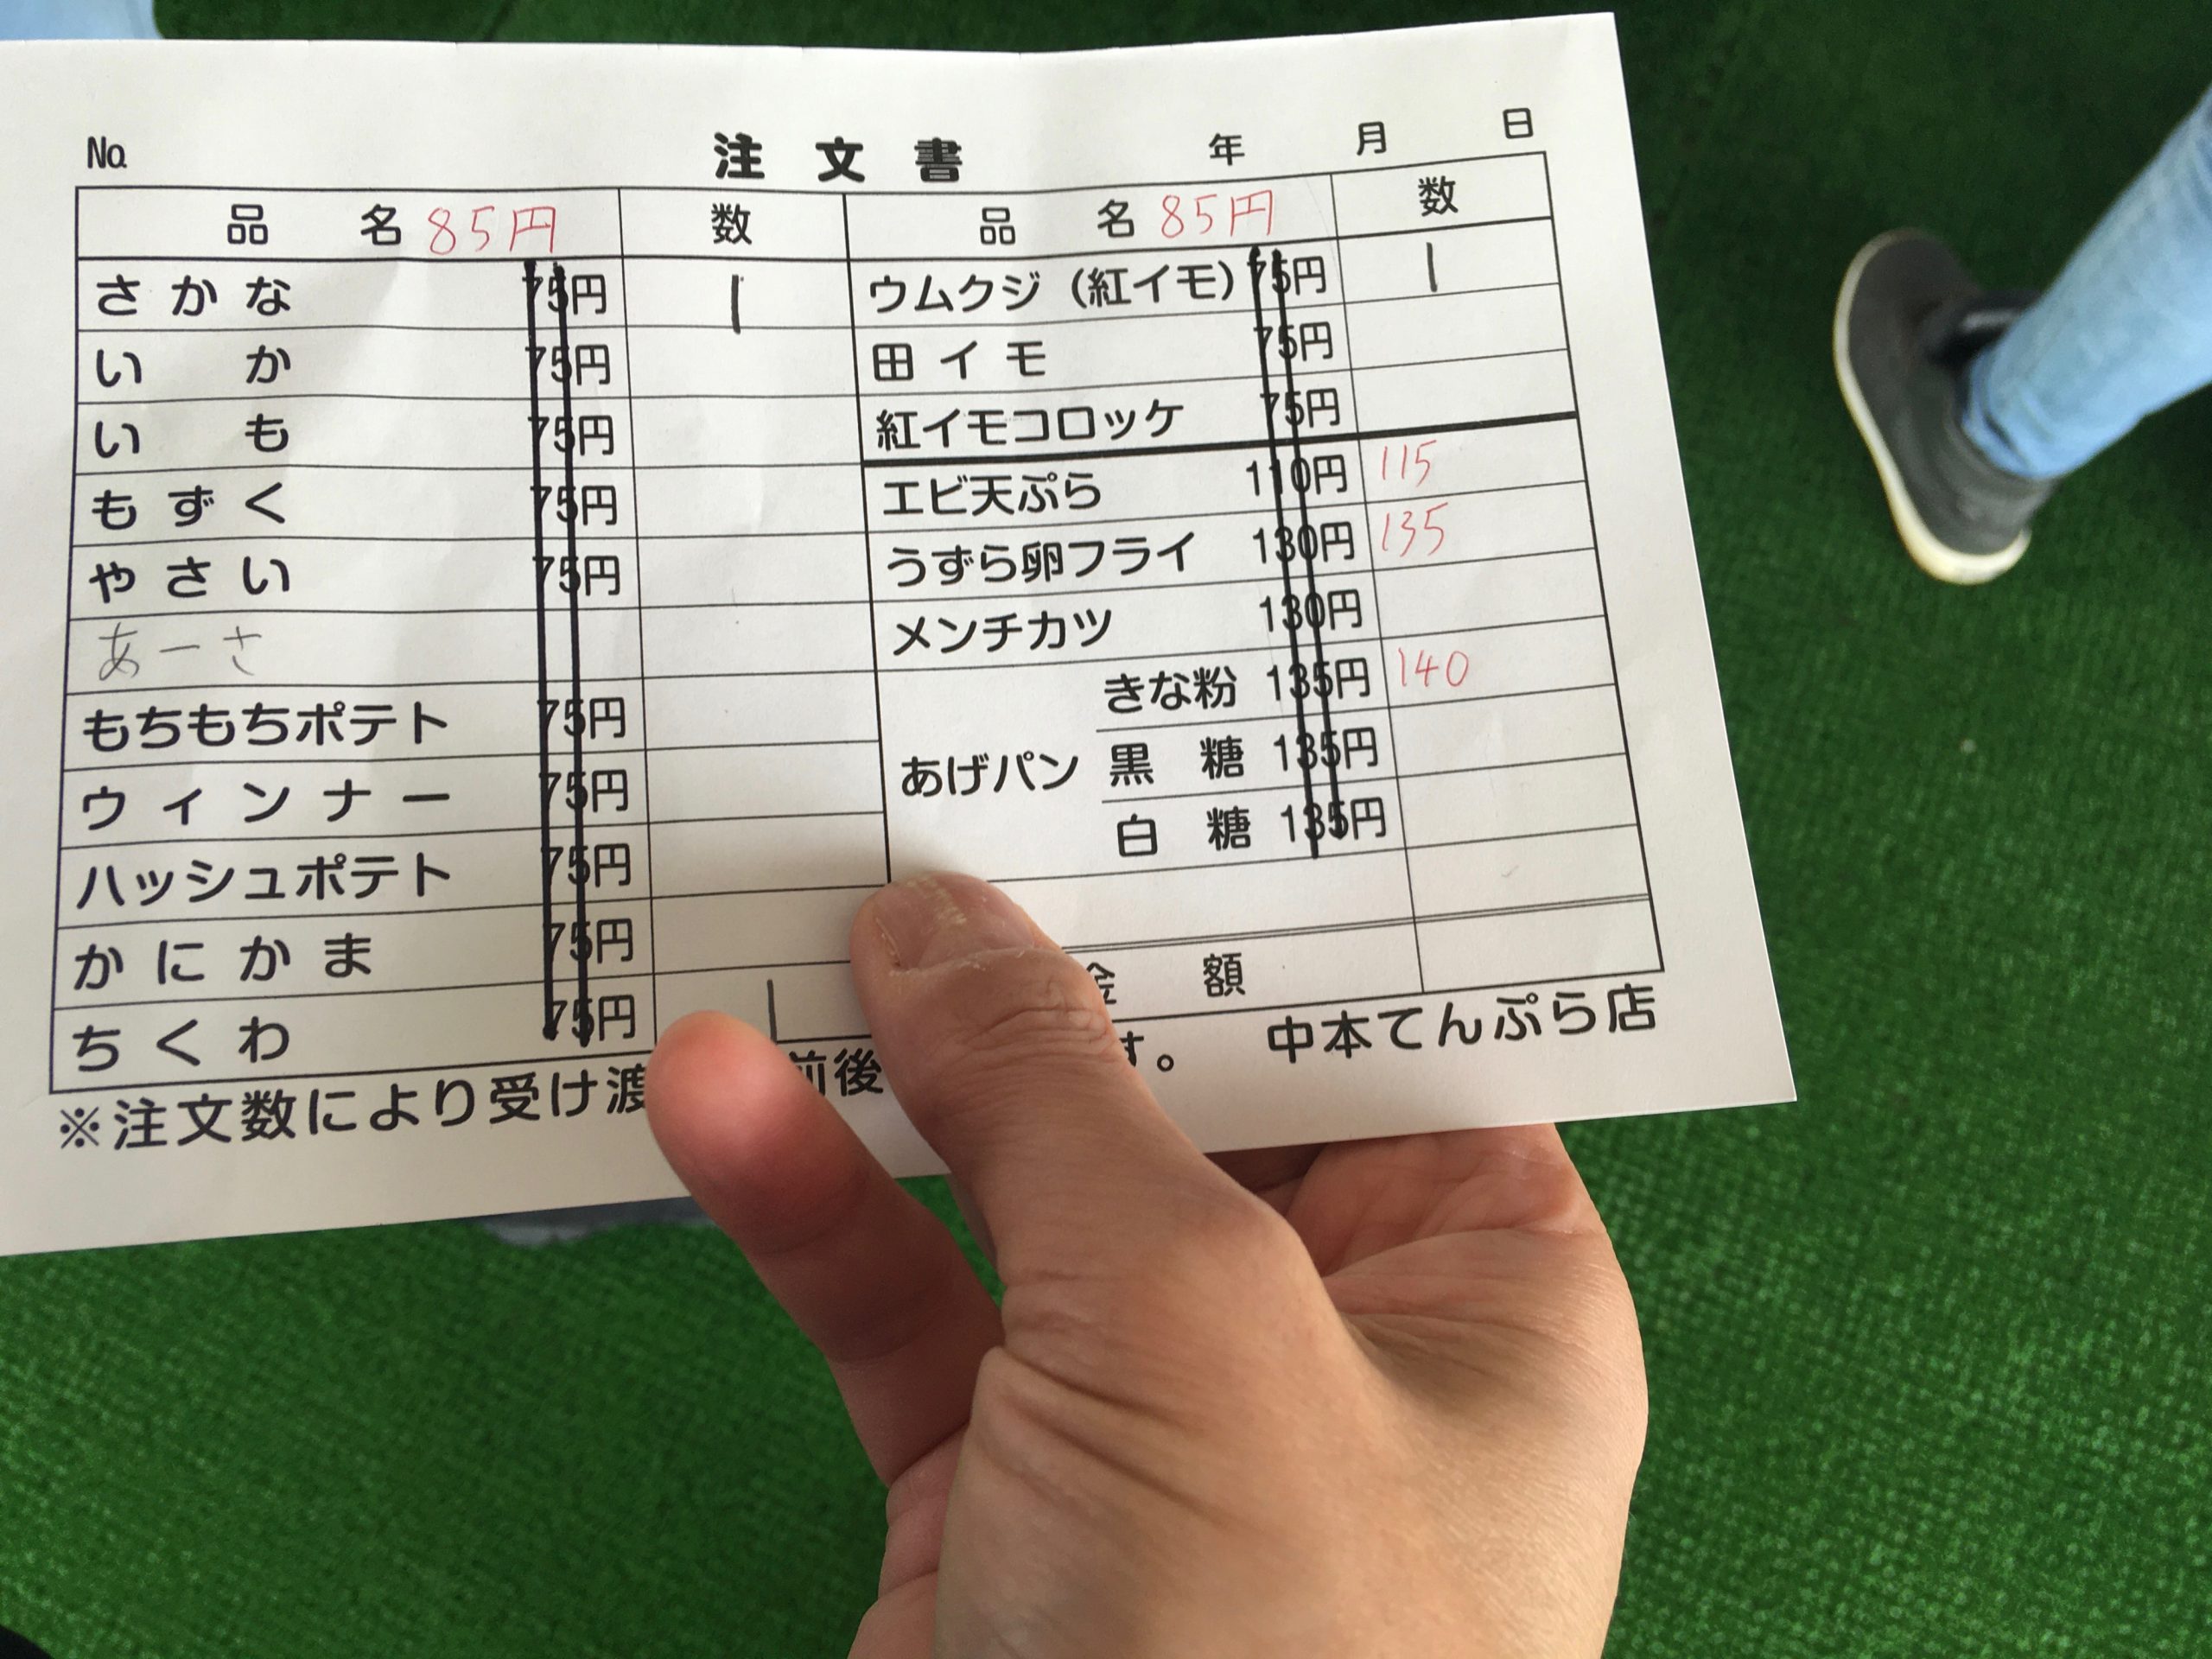 No. 注文書 年 月 日
品名 85円 数
さかな 75円 1
いか 75円
いも 75円
もずく 75円
やさい 75円
あーさ
もちもちポテト 75円
ウィンナー 75円
ハッシュポテト 75円
かにかま 75円
ちくわ 75円 1
品名 85円 数
ウムクジ（紅イモ） 75円 1
田イモ 75円
紅イモコロッケ 75円
エビ天ぷら 110円 115
うずら卵フライ 130円 135
メンチカツ 130円
あげパン きな粉 135円 140
黒糖 135円
白糖 135円
金額
※注文数により受け渡 前後 す。 中本てんぷら店